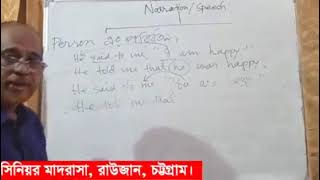 Narration/Speech
Person এর পরিবর্তন:
He said to me "I am happy"
He told me that he was happy.
He said to me "
He told me that
সিনিয়র মাদরাসা, রাউজান, চট্টগ্রাম।